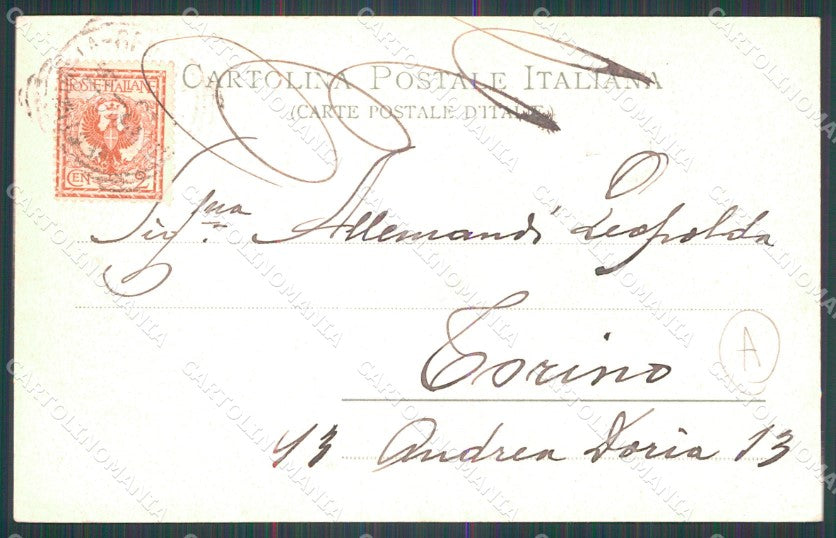 CARTOLINA POSTALE ITALIANA
(CARTE POSTALE D'ITALIE)
POSTE ITALIANE
CEN 2
Sig.na Allemandi Leopolda
Torino
A
13 Andrea Doria 13
CARTOLINOMANIA